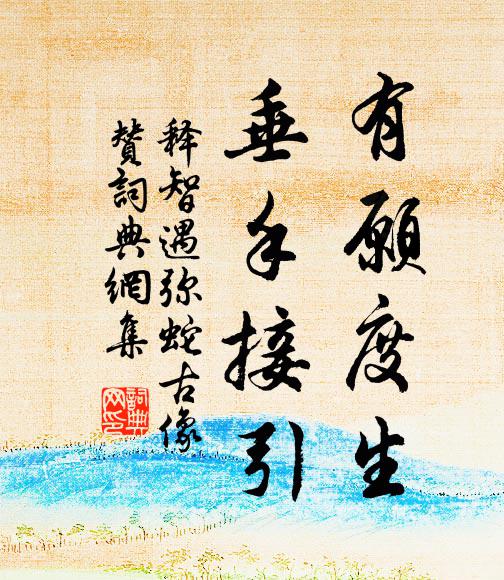 有願度生
垂手接引
释智遇弥蛇古像
賛詞典網集
詞典
网印